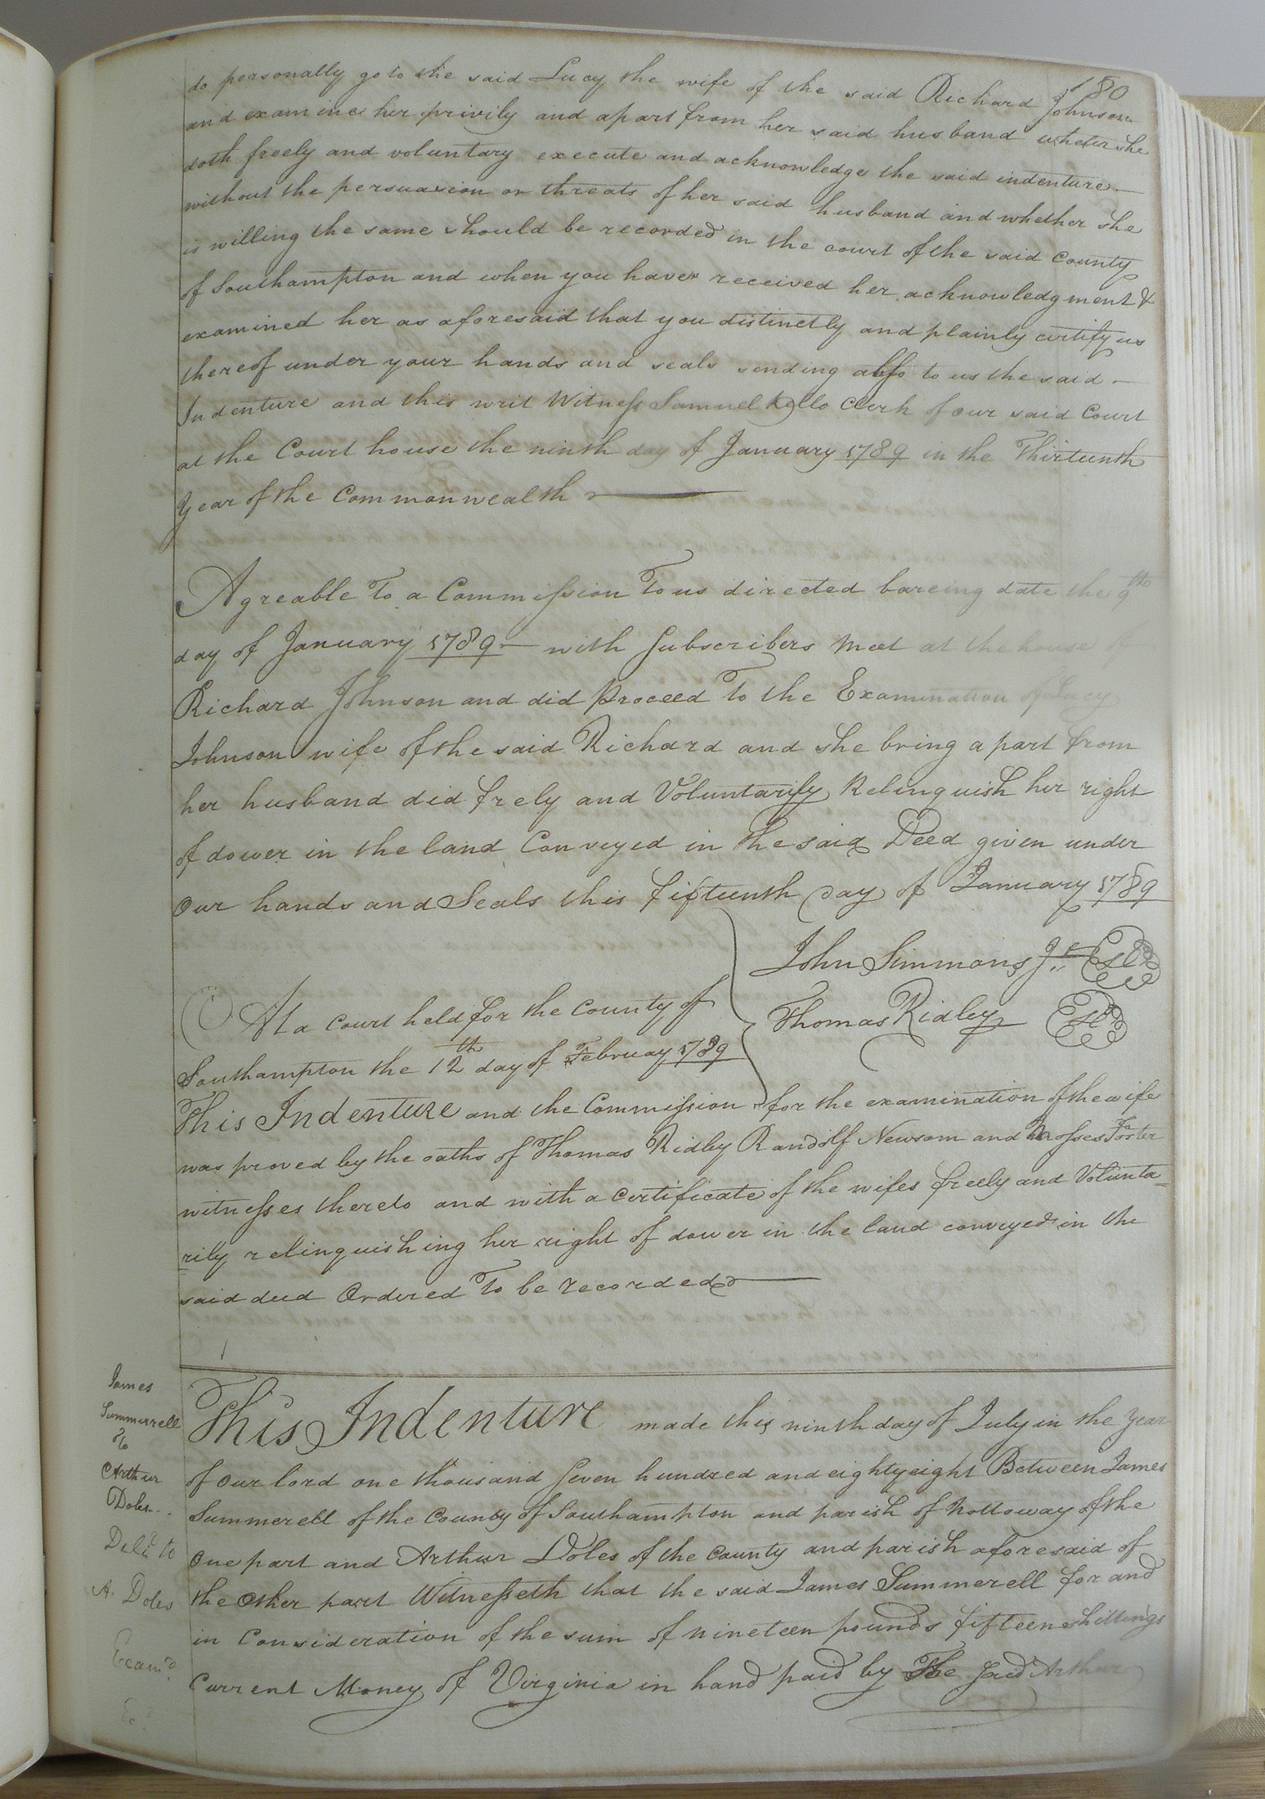 180
do personally go to the said Lucy the wife of the said Richard Johnson
and examine her privily and apart from her said husband whether she
doth freely and voluntary execute and acknowledge the said indenture —
without the persuasion or threats of her said husband and whether she
is willing the same should be recorded in the court of the said County
of Southampton and when you have received her acknowledgment &
examined her as aforesaid that you distinctly and plainly certify us
thereof under your hands and seals sending also to us the said —
Indenture and this writ Witness Samuel Kello Clerk of our said Court
at the Court house the ninth day of January 1789 in the Thirteenth
Year of the Commonwealth
Agreable To a Commission To us directed bareing date the 9th
day of January 1789 — with Subscribers Meet at the house of
Richard Johnson and did Proceed To the Examination of Lucy
Johnson wife of the said Richard and she being a part from
her husband did frely and Voluntarily Relinquish her right
of dower in the land Conveyed in the said Deed given under
our hands and Seals this fifteenth Day of January 1789
John Simmons Jr
Thomas Ridley
At a Court held for the County of
Southampton the 12th day of February 1789
This Indenture and the Commission for the examination of the wife
was proved by the oaths of Thomas Ridley Randolf Newsom and Mosses Foster
witnesses thereto and with a certificate of the wifes freely and Volunta=
rily relinquishing her right of dower in the land conveyed in the
said deed Ordered To be recorded
James
Summerrell
To
Arthur
Doles
Deld to
A. Doles
Examd
This Indenture made this ninth day of July in the Year
of our lord one thousand Seven hundred and eightyeight Between James
Summerell of the County of Southampton and parish of Nottoway of the
One part and Arthur Doles of the County and parish aforesaid of
the Other part Witnesseth that the said James Summerell for and
in Consideration of the sum of nineteen pounds fifteen shillings
Current Money of Virginia in hand paid by The said Arthur